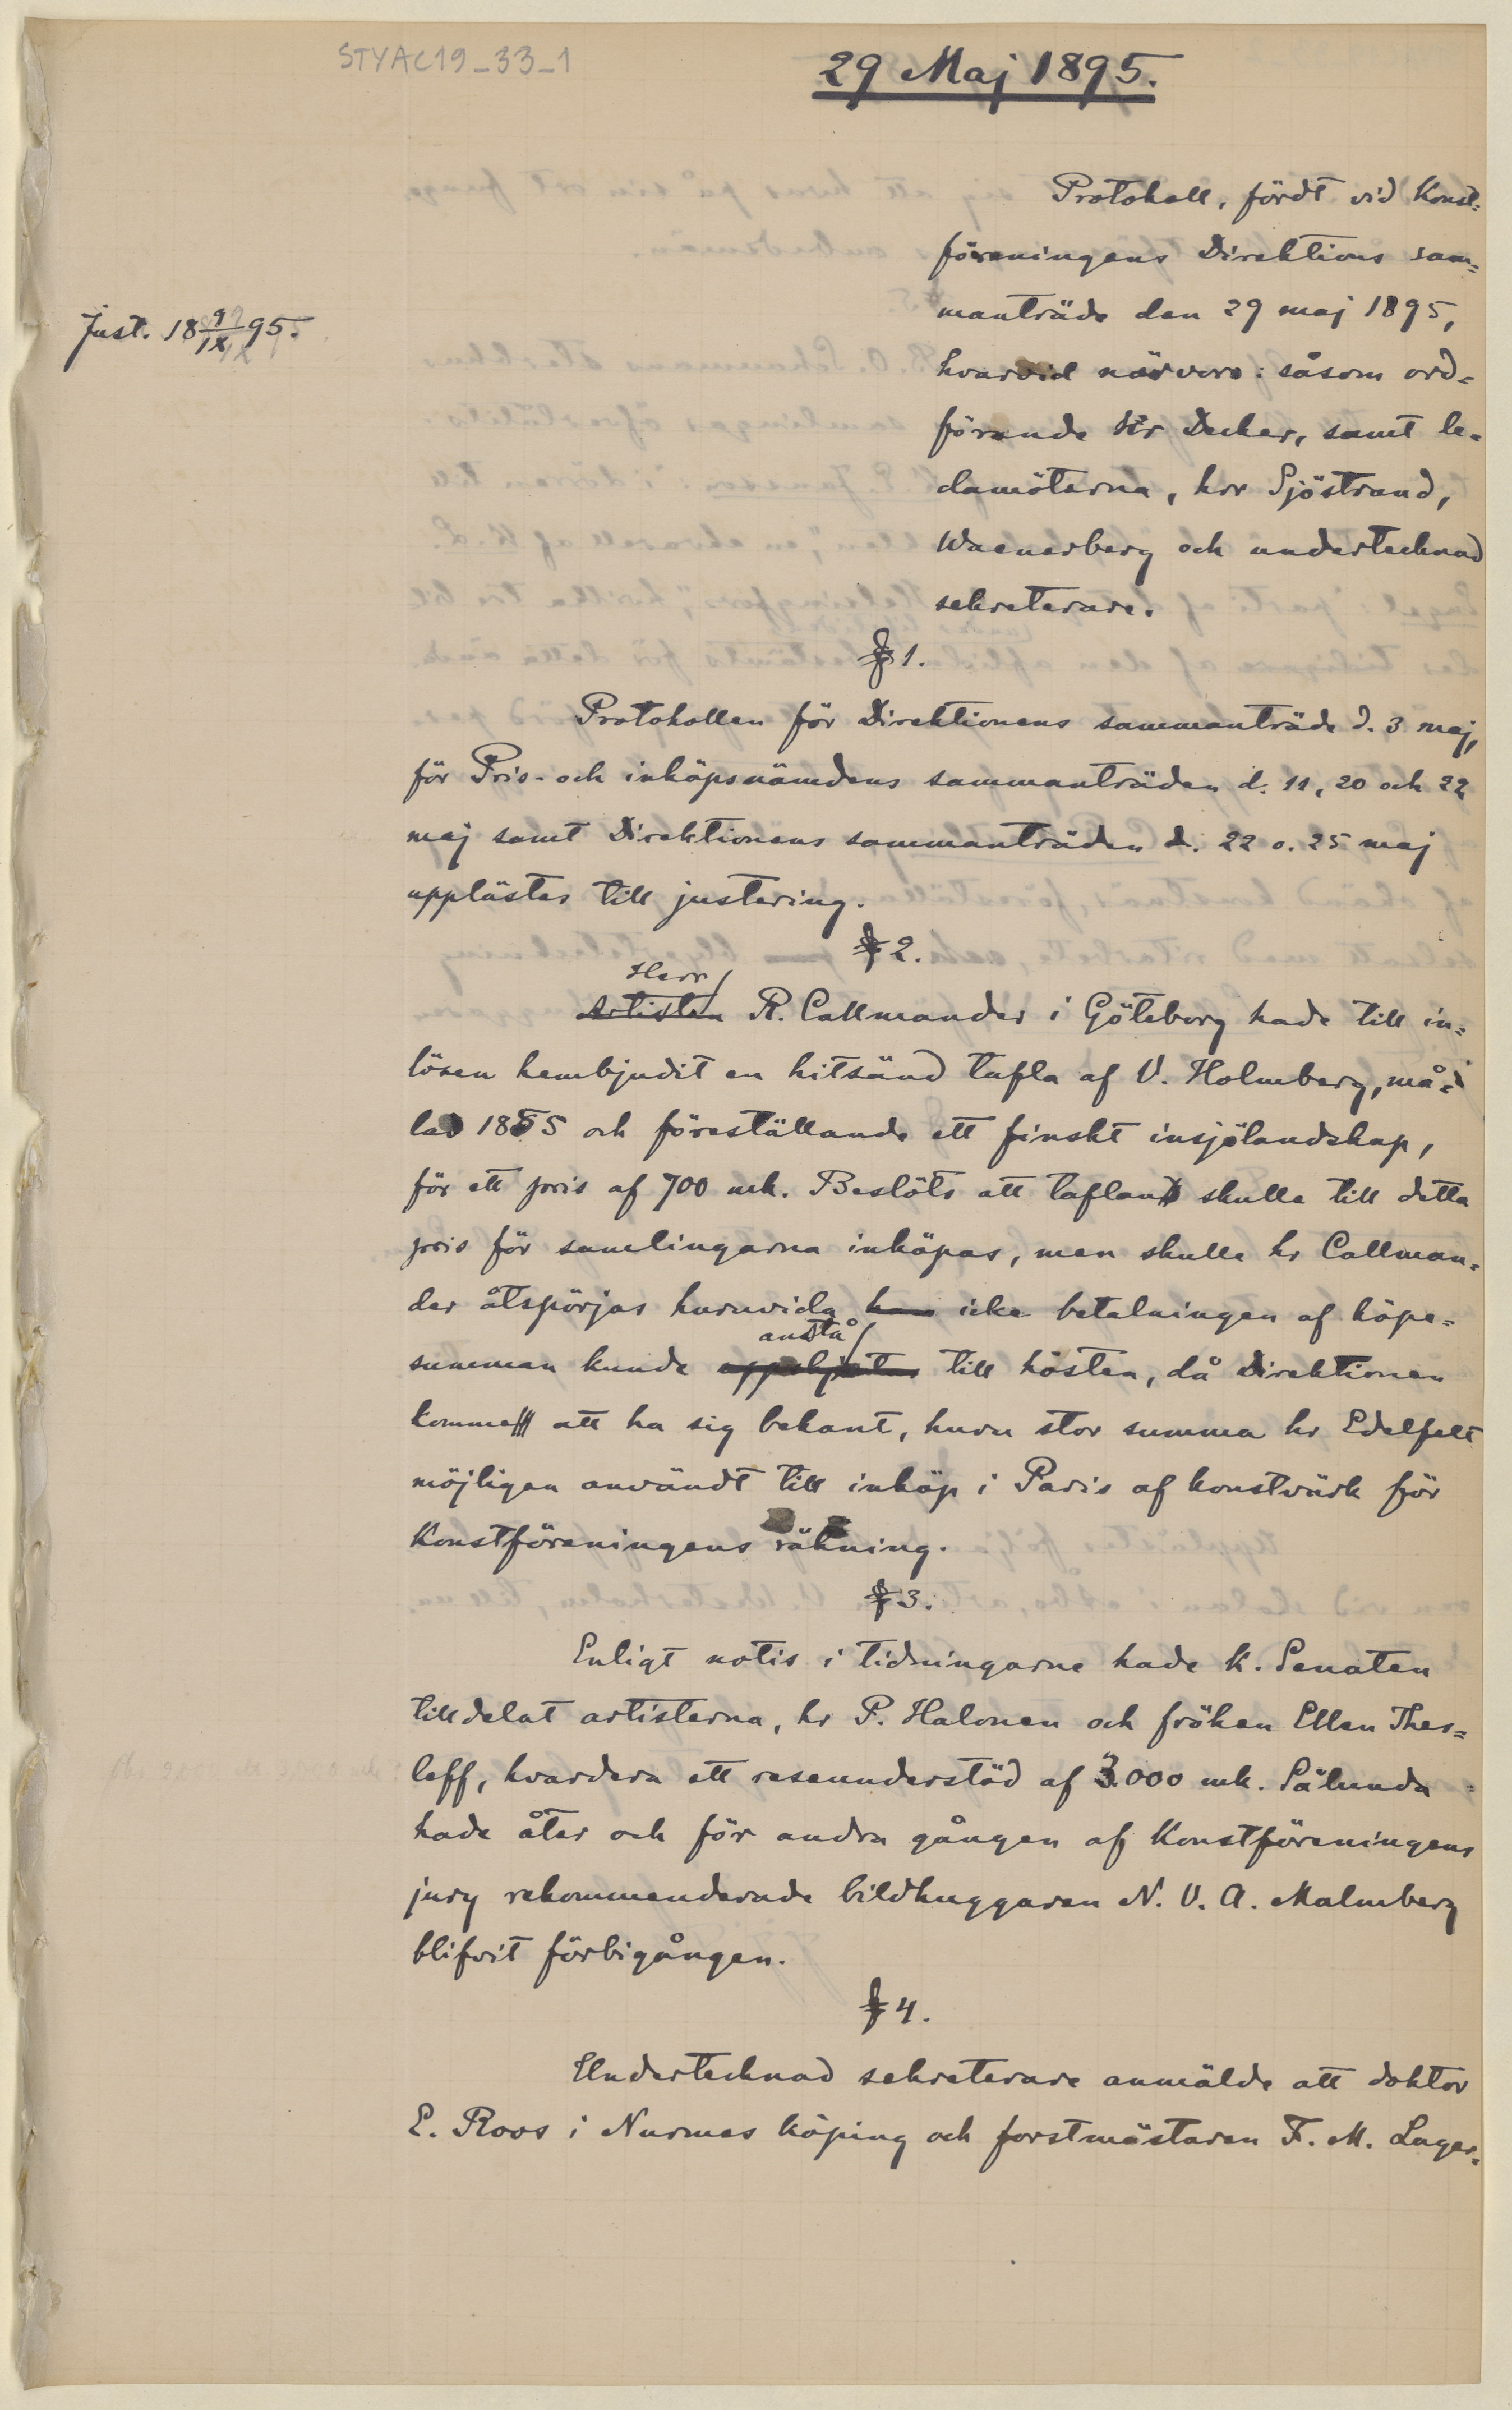 STYAC19_33_1
29 Maj 1895.
Protokoll, fördt vid Konst-
föreningens Direktions sam-
manträde den 29 maj 1895,
hvarvid närvoro: såsom ord-
förande Hr Decker, samt le-
damöterna, hrr Sjöstrand,
Waenerberg och undertecknad
sekreterare.
Just. 18 9/IX 95.
§ 1.
Protokollen för Direktionens sammanträde d. 3 maj,
för Pris- och inköpsnämdens sammanträden d. 11, 20 och 22
maj samt Direktionens sammanträden d. 22 o. 25 maj
upplästes till justering.
§ 2.
Herr
Artisten R. Callmander i Göteborg hade till in-
lösen hembjudit en hitsänd tafla af V. Holmberg, må-
lad 1855 och föreställande ett finskt insjölandskap,
för ett pris af 700 mk. Beslöts att taflan skulle till detta
pris för samlingarna inköpas, men skulle hr Callman-
der åtspörjas huruvida han icke betalningen af köpe-
anstå
summan kunde till hösten, då Direktionen
komme att ha sig bekant, huru stor summa hr Edelfelt
möjligen användt till inköp i Paris af konstvärk för
Konstföreningens räkning.
§ 3.
Enligt notis i tidningarne hade K. Senaten
tilldelat artisterna, hr P. Halonen och fröken Ellen Thes-
leff, hvardera ett reseunderstöd af 3.000 mk. Sålunda
hade åter och för andra gången af Konstföreningens
jury rekommenderade bildhuggaren N. V. A. Malmberg
blifvit förbigången.
§ 4.
Undertecknad sekreterare anmälde att doktor
E. Roos i Nurmes köping och forstmästaren F. M. Lager-